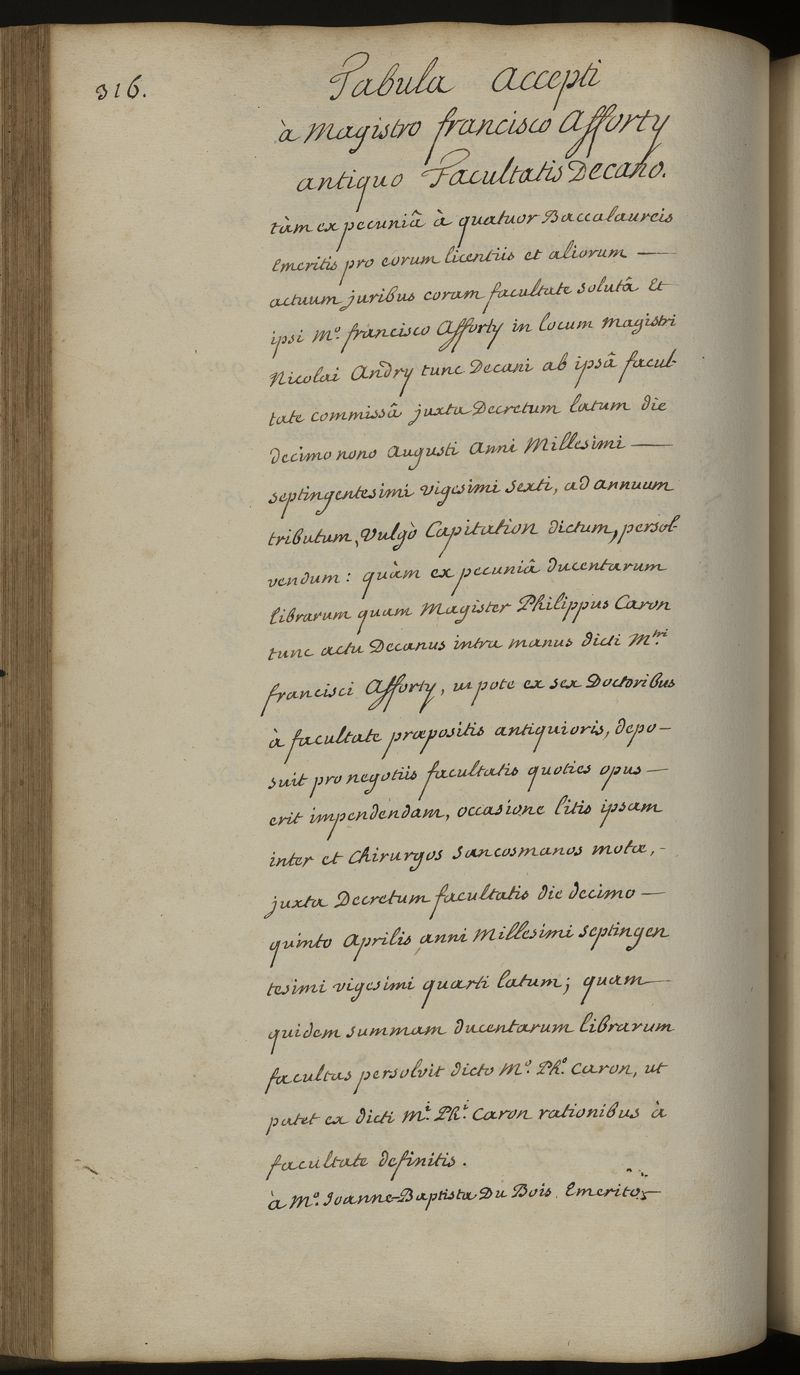 316.
Tabula Accepti
à Magistro francisco Afforty
antiquo Facultatis Decano.
tàm ex pecuniâ à quatuor Baccalaureis
Emeritis pro eorum licentiis et aliorum —
actuum juribus coram facultate solutâ Et
ipsi M.o francisco Afforty in locum Magistri
Nicolai Andry tunc Decani ab ipsâ facul-
tate commissâ juxta Decretum latum die
decimo nono Augusti Anni Millesimi —
septingentesimi vigesimi sexti, ad annuum
tributum, Vulgò Capitation dictum, persol-
vendum: quàm ex pecuniâ ducentarum
librarum quam Magister Philippus Caron
tunc actu Decanus intra manus dicti M.tri
francisci Afforty, ut pote ex sex Doctoribus
à facultate præpositis antiquioris, depo-
suit pro negotiis facultatis quoties opus —
erit impendendam, occasione litis ipsam
inter et Chirurgos Sancosmanos motæ, -
juxta Decretum facultatis die decimo —
quinto Aprilis anni Millesimi Septingen
tesimi vigesimi quarti latum; quam —
quidem summam ducentarum librarum
facultas persolvit dicto M.o Ph.o Caron, ut
patet ex dicti M.i Ph.i Caron rationibus à
facultate definitis.
à M.o Joanne-Baptista Du Bois Emerito —